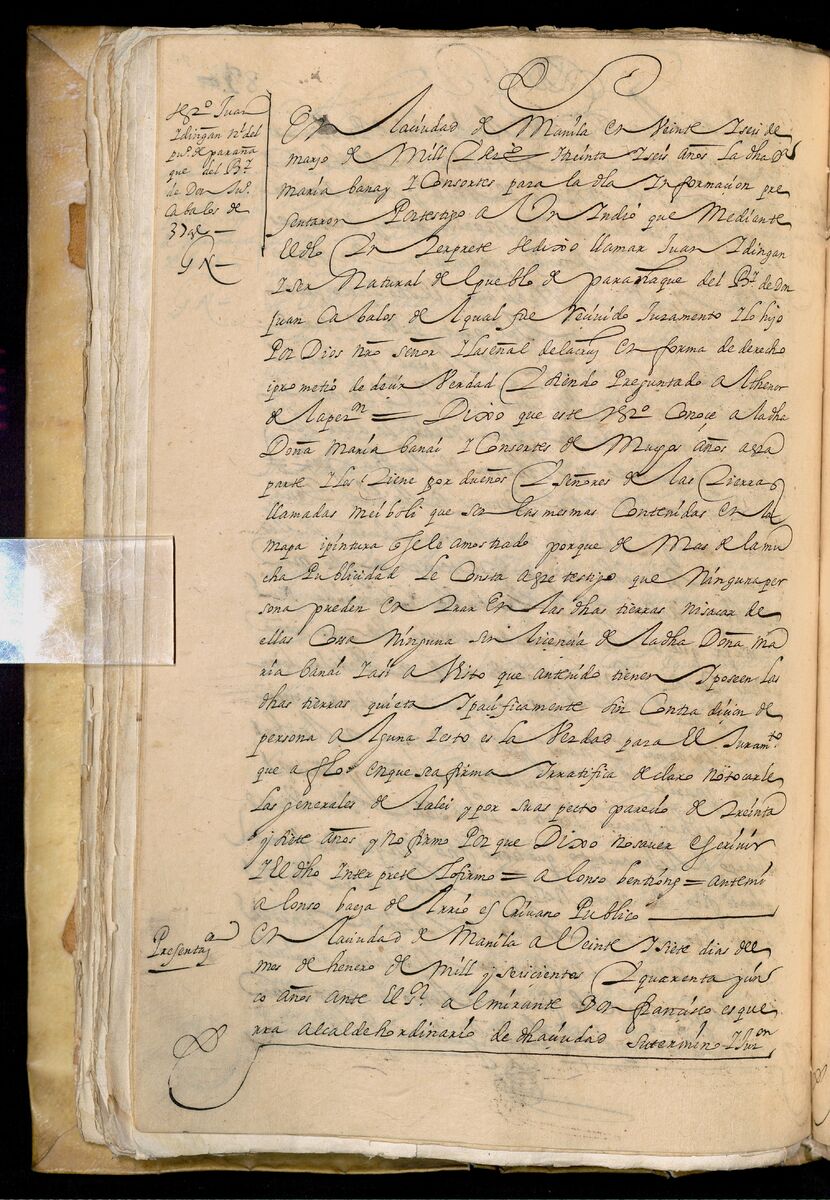 tes.º Juan
Idingan n.l del
pu.º de parana
que del B.º
de Don Ju.º
Cabalos de
37 a.s
G N
En La ciudad de Manila en Veinte I seis de
março de Mill I seis.os treinta I seis años La dha D.a
maria banay I Consortes para la dha Informaçion pre
sentaron Por testigo a Un Indio que Mediante
El dho Interprete se dixo llamar Juan Idingan
I ser Natural del pueblo de paranaque del B.º de Don
Juan Cabalos del qual fue Reçiuido Juramento I lo hijo
Por Dios nro señor I la señal de la cruz en forma de derecho
i prometio de deçir Verdad I siendo Preguntado al thenor
de la pet.on = Dixo que este tes.º Conoce a la dha
Doña Maria banai I Consortes de Muchos años a esta
parte I los tiene por dueños I señores de las tierras
llamadas meiboli que son las mesmas Contenidas en la
mapa i pintura q se le a mostrado porque de Mas de la mu
cha Publicidad Le Consta a este testigo que Ninguna per
sona pueden entrar En las dhas tierras ni sacar de
ellas Cossa Ninguna sin liçençia de la dha Doña ma
ria banai I asi a Visto que an tenido tienen I poseen las
dhas tierras quieta I paçificamente sin Contradiçion de
persona alguna I esto es la Verdad para El Juram.to
que a fho en que se afirma I rratifica declaro no tocarle
Las generales de la lei y por su aspecto pareçio de treinta
y siete años y no firmo Por que Dixo no sauer escriuir
I El dho Interprete lo firmo = alonso bentiong = ante mi
alonso baeza del Rio escriuano Publico
Presenta.on
En La ciudad de Manila a Veinte I siete dias del
mes de henero de mill y seiscientos I quarenta y çin
co años ante El S.r almirante Don françisco esque
rra alcalde hordinario de dha çiudad su termino I Jur.on